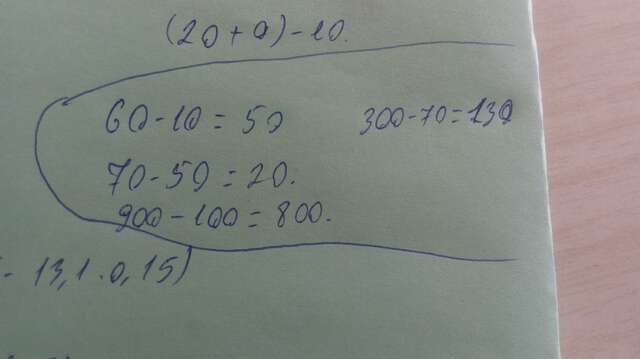 (20+a)-10.
60-10=50 300-70=130
70-50=20.
900-100=800.
- 13,1.0,15)